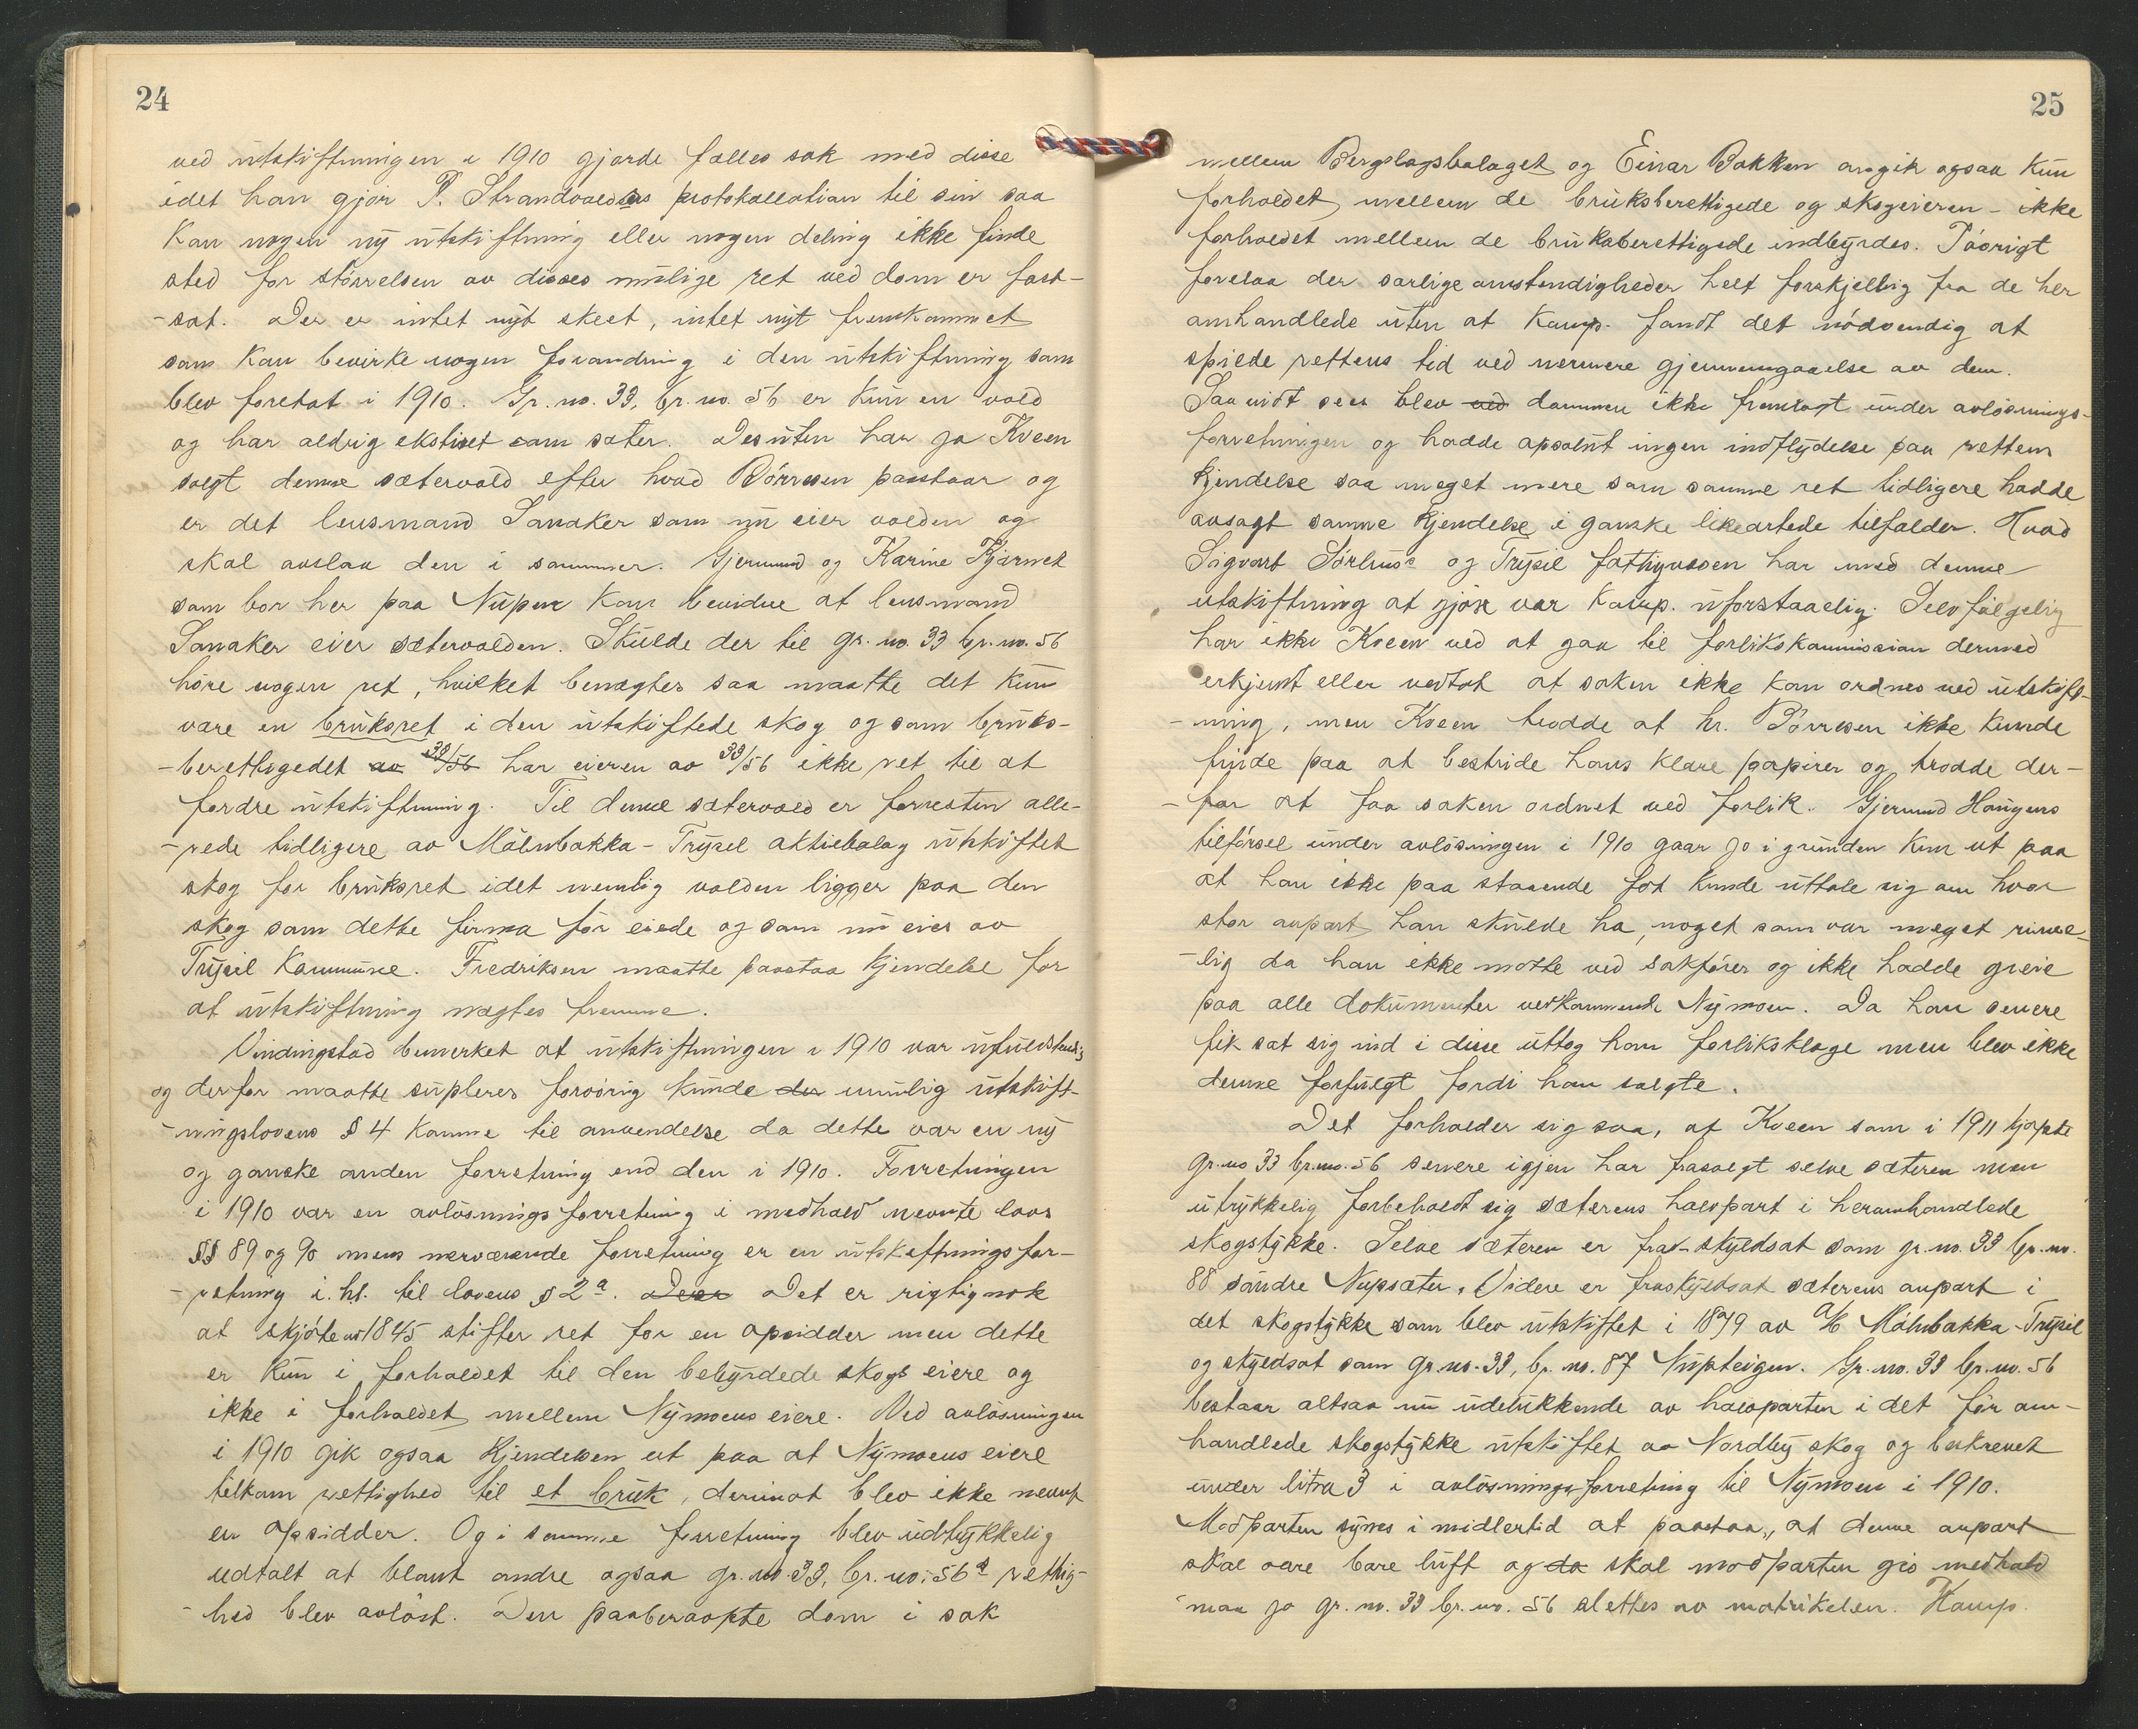 24
ved utskiftningen i 1910 gjorde fælles sak med disse
idet han gjør P. Strandvolds protokollation til sin saa
kan nogen ny utskiftning eller nogen deling ikke finde
sted før størrelsen av disses mulige ret ved dom er fast-
-sat. Der er intet nyt skeet, intet nyt fremkommet
som kan bevirke nogen forandring i den utskiftning som
blev foretat i 1910. Gr. no. 33, br. no. 56 er kun en vold
og har aldrig ekstiset som sæter. Desuten har jo Kveen
solgt denne sætervold efter hvad Børresen paastaar og
er det lensmand Sanaker som nu eier volden og
skal avslaa den i sommer. Gjermund og Karine Kjærnet
som bor her paa Nupen kan bevidne at lensmand
Sanaker eier sætervolden. Skulde der til gr. no. 33 br. no. 56
høre nogen ret, hvilket benegtes saa maatte det kun
være en bruksret i den utskiftede skog og som bruks-
-berettigedet av 33/56 har eieren av 33/56 ikke ret til at
fordre utskiftning. Til denne sætervold er forresten alle-
-rede tidligere av Målnbakka-Trysil aktiebolag utskiftet
skog for bruksret idet nemlig volden ligger paa den
skog som dette firma før eiede og som nu eies av
Trysil Kommune. Fredriksen maatte paastaa kjendelse for
at utskiftning nægtes fremme.
Vindingstad bemerket at utskiftningen i 1910 var ufuldstændig
og derfor maatte supleres forøvrig kunde der umulig utskift-
-ningslovens § 4 komme til anvendelse da dette var en ny
og ganske anden forretning end den i 1910. Forretningen
i 1910 var en avløsningsforretning i medhold nevnte lovs
§§ 89 og 90 mens nærværende forretning er en utskiftningsfor-
-retning i. hl. til lovens § 2a. Deer Det er rigtignok
at skjøte av 1845 stifter ret for en opsidder men dette
er kun i forholdet til den behyrdede skogs eiere og
ikke i forholdet mellem Nymoens eiere. Ved avløsningen
i 1910 gik ogsaa kjendelsen ut paa at Nymoens eiere
tilkom rettighed til et bruk, derimot blev ikke nevnt
en opsidder. Og i samme forretning blev udtrykkelig
udtalt at blant andre ogsaa gr. no. 33, br. no. 56a rettig-
-hed blev avløst. Den paaberaapte dom i sak
25
mellem Bergslagsbolaget og Einar Bakken angik ogsaa kun
forholdet mellem de bruksberettigede og skogeieren - ikke
forholdet mellem de bruksberettigede indbyrdes. Iøvrigt
forelaa der særlige omstendigheder helt forskjellig fra de her
omhandlede uten at komp. fandt det nødvendig at
spilde rettens tid ved nermere gjennemgaaelse av dem.
Saavidt sees blev ved dommen ikke fremlagt under avløsnings-
forretningen og hadde apsolut ingen indflydelse paa rettens
kjendelse saa meget mere som samme ret tidligere hadde
avsagt samme kjendelse i ganske likeartede tilfælder. Hvad
Sigvart Sørhuse og Trysil fattigvæsen har med denne
utskiftning at gjøre var komp. uforstaaelig. Selvfølgelig
har ikke Kveen ved at gaa til forlikskommission dermed
erkjent eller vedtat at saken ikke kan ordnes ved utskift-
-ning, men Kveen trodde at hr. Børresen ikke kunde
finde paa at bestride hans klare papirer og trodde der-
-for at faa saken ordnet ved forlik. Gjermund Haugens
tilførsel under avløsningen i 1910 gaar jo i grunden kun ut paa
at han ikke paa staaende fot kunde uttale sig om hvor
stor anpart han skulde ha, noget som var meget rime-
-lig da han ikke møtte ved sakfører og ikke hadde greie
paa alle dokumenter vedkommende Nymoen. Da han senere
fik sat sig ind i disse uttog han forliksklage men blev ikke
denne forfulgt fordi han solgte.
Det forholder sig saa, at Kveen som i 1911 kjøpte
gr. no 33 br. no. 56 senere igjen har frasolgt selve sæteren men
utrykkelig forbeholdt sig sæterens halvpart i heromhandlede
skogstykke. Selve sæteren er fra-skyldsat som gr. no. 33 br. no.
88 søndre Nupsæter. Videre er fraskyldsat sæterens anpart i
det skogstykke som blev utskiftet i 1879 av A/B Målnbakka-Trysil
og skyldsat som gr. no. 33, br. no. 87 Nupteigen. Gr. no. 33 br. no. 56
bestaar altsaa nu udelukkende av halvparten i det før om-
handlede skogstykke utskiftet av Nordby skog og beskrevet
under litra 3 i avløsningsforretning til Nymoen i 1910.
Modparten synes i midlertid at paastaa, at denne anpart
skal være bare luft og da skal modparten gis medhold
maa jo gr. no. 33 br. no. 56 slettes av matrikelen. Komp.